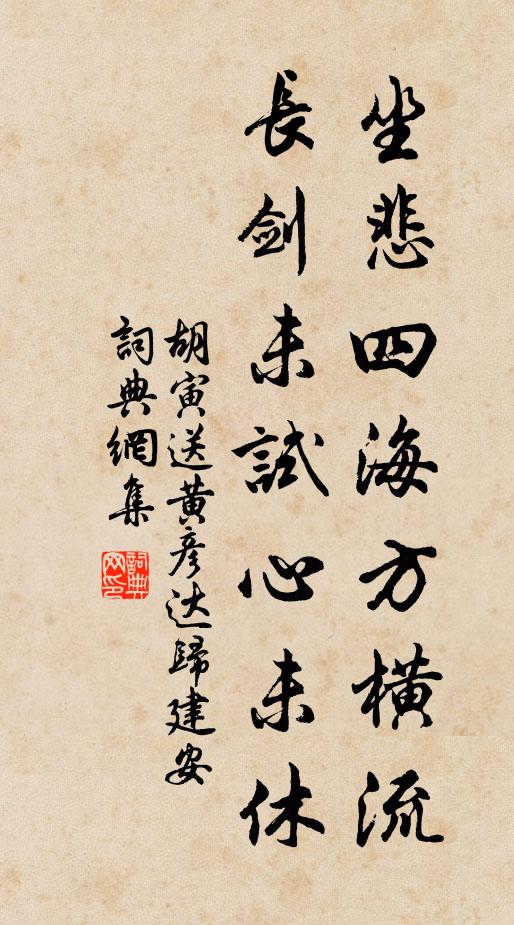 坐悲四海方橫流
長劍未試心未休
胡寅送黄彦达歸建安
詞典網集
詞典网印